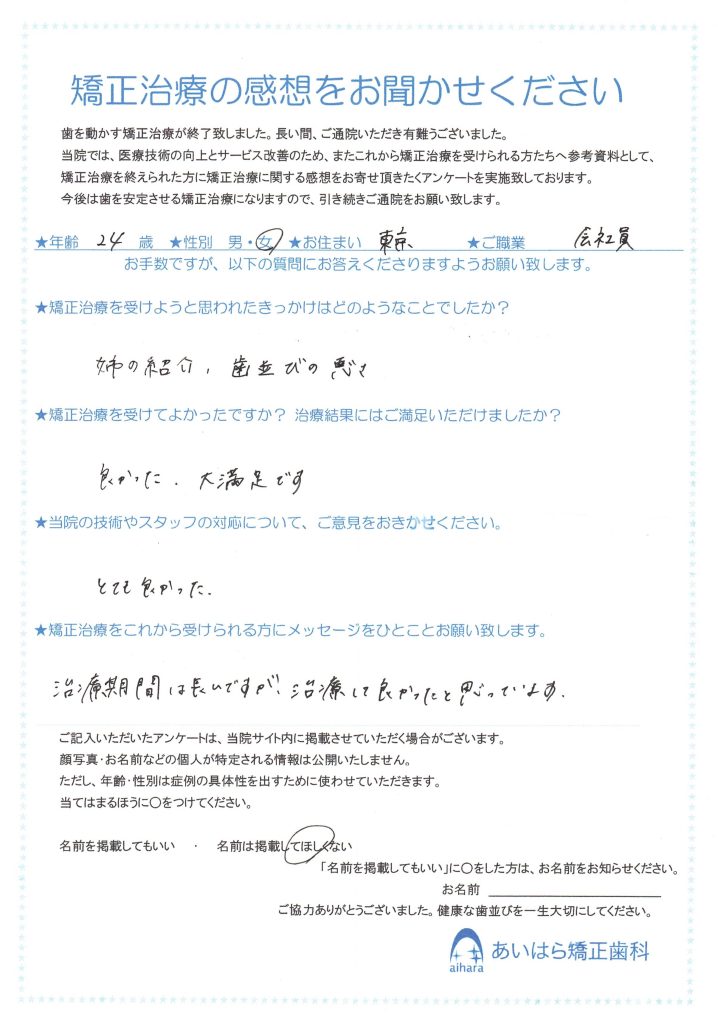 矯正治療の感想をお聞かせください
歯を動かす矯正治療が終了致しました。長い間、ご通院いただき有難うございました。
当院では、医療技術の向上とサービス改善のため、またこれから矯正治療を受けられる方たちへ参考資料として、
矯正治療を終えられた方に矯正治療に関する感想をお寄せ頂きたくアンケートを実施致しております。
今後は歯を安定させる矯正治療になりますので、引き続きご通院をお願い致します。
★年齢 24 歳 ★性別 男・女 ★お住まい 東京 ★ご職業 会社員
お手数ですが、以下の質問にお答えくださりますようお願い致します。
★矯正治療を受けようと思われたきっかけはどのようなことでしたか？
姉の紹介、歯並びの悪さ
★矯正治療を受けてよかったですか？ 治療結果にはご満足いただけましたか？
良かった。大満足です
★当院の技術やスタッフの対応について、ご意見をおきかせください。
とても良かった。
★矯正治療をこれから受けられる方にメッセージをひとことお願い致します。
治療期間は長いですが、治療して良かったと思っています。
ご記入いただいたアンケートは、当院サイト内に掲載させていただく場合がございます。
顔写真・お名前などの個人が特定される情報は公開いたしません。
ただし、年齢・性別は症例の具体性を出すために使わせていただきます。
当てはまるほうに○をつけてください。
名前を掲載してもいい ・ 名前は掲載してほしくない
「名前を掲載してもいい」に○をした方は、お名前をお知らせください。
お名前
ご協力ありがとうございました。健康な歯並びを一生大切にしてください。
aihara あいはら矯正歯科